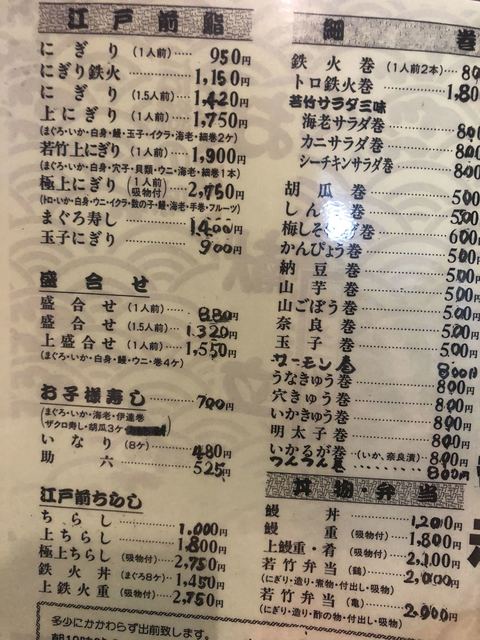 江戸前鮨
にぎり (1人前)…… 950円
にぎり鉄火…… 1,150円
にぎり (1.5人前)…… 1,420円
上にぎり (1人前)…… 1,750円
(まぐろ・いか・白身・鰻・玉子・イクラ・海老・細巻2ケ)
若竹上にぎり (1人前)…… 1,900円
(まぐろ・いか・白身・穴子・貝類・ウニ・海老・細巻1本)
極上にぎり (1人前 吸物付)…… 2,750円
(トロ・いか・白身・ウニ・イクラ・数の子・鰻・海老・手巻・フルーツ)
まぐろ寿し…… 1,400円
玉子にぎり…… 900円
盛合せ
盛合せ (1人前)…… 880円
盛合せ (1.5人前)…… 1,320円
上盛合せ (1人前)…… 1,550円
(まぐろ・いか・白身・鰻・ウニ・巻4ケ)
お子様寿し…… 700円
(まぐろ・いか・海老・伊達巻
ザクロ寿し・胡瓜3ケ
いなり (8ケ)…… 480円
助六…… 525円
江戸前ちらし
ちらし…… 1,000円
上ちらし…… 1,800円
極上ちらし (吸物付)…… 2,750円
鉄火丼 (まぐろ8ケ)…… 1,450円
上鉄火重 (吸物付)…… 2,750円
多少にかかわらず出前致します。
細巻
鉄火巻 (1人前2本)…… 80
トロ鉄火巻…… 1,80
若竹サラダ三味
海老サラダ巻…… 800
カニサラダ巻…… 800
シーチキンサラダ巻…… 800
胡瓜巻…… 500
しん…… 500
梅しそ 巻…… 600
かんぴょう巻…… 500円
納豆巻…… 500円
山芋巻…… 500円
山ごぼう巻…… 500円
奈良巻…… 500円
玉子巻…… 500円
サーモン巻 800円
うなきゅう巻…… 800円
穴きゅう巻…… 800円
いかきゅう巻…… 800円
明太子巻…… 800円
いかるが巻 (いか、奈良漬)…… 800円
つんつん巻…… 800円
丼物・弁当
鰻丼…… 1,200円
鰻重 (吸物付)…… 1,800円
上鰻重・肴 (吸物付)…… 2,100円
若竹弁当 (鶴)…… 2,000円
(にぎり・造り・煮物・付出し・吸物)
若竹弁当 (亀)…… 2,000円
(にぎり・造り・酢の物・付出し・吸物)